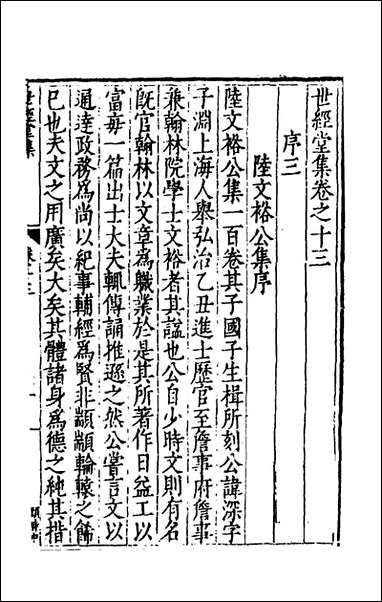 世經堂集卷之十三
序三
陸文裕公集序
陸文裕公集一百卷其子國子生楫所刻公諱深字
子淵上海人舉弘治乙丑進士歷官至詹事府詹事
兼翰林院學士文裕者其謚也公自少時文則有名
旣官翰林以文章爲職業於是其所著作日益工以
富每一篇出士大夫輒傳誦推遜之然公嘗言文以
通達政務爲尚以紀事輔經爲賢非顓顓輪轅之飾
已也夫文之用廣矣大矣其體諸身爲德之純其措